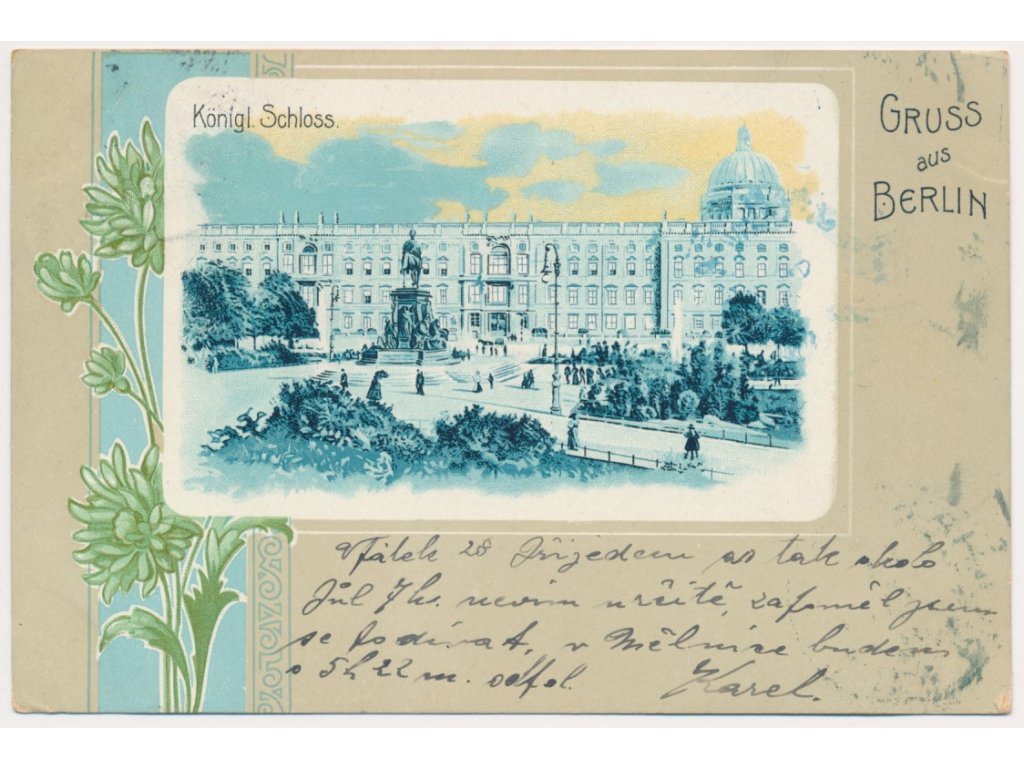 Königl. Schloss.
GRUSS
aus
BERLIN
Pátek 28 Přijedem as tak okolo
půl 7 h. nevím určitě, zapoměl jsem
se podívat, v Mělnice budem
o 5h 22 m. odpol. Karel.